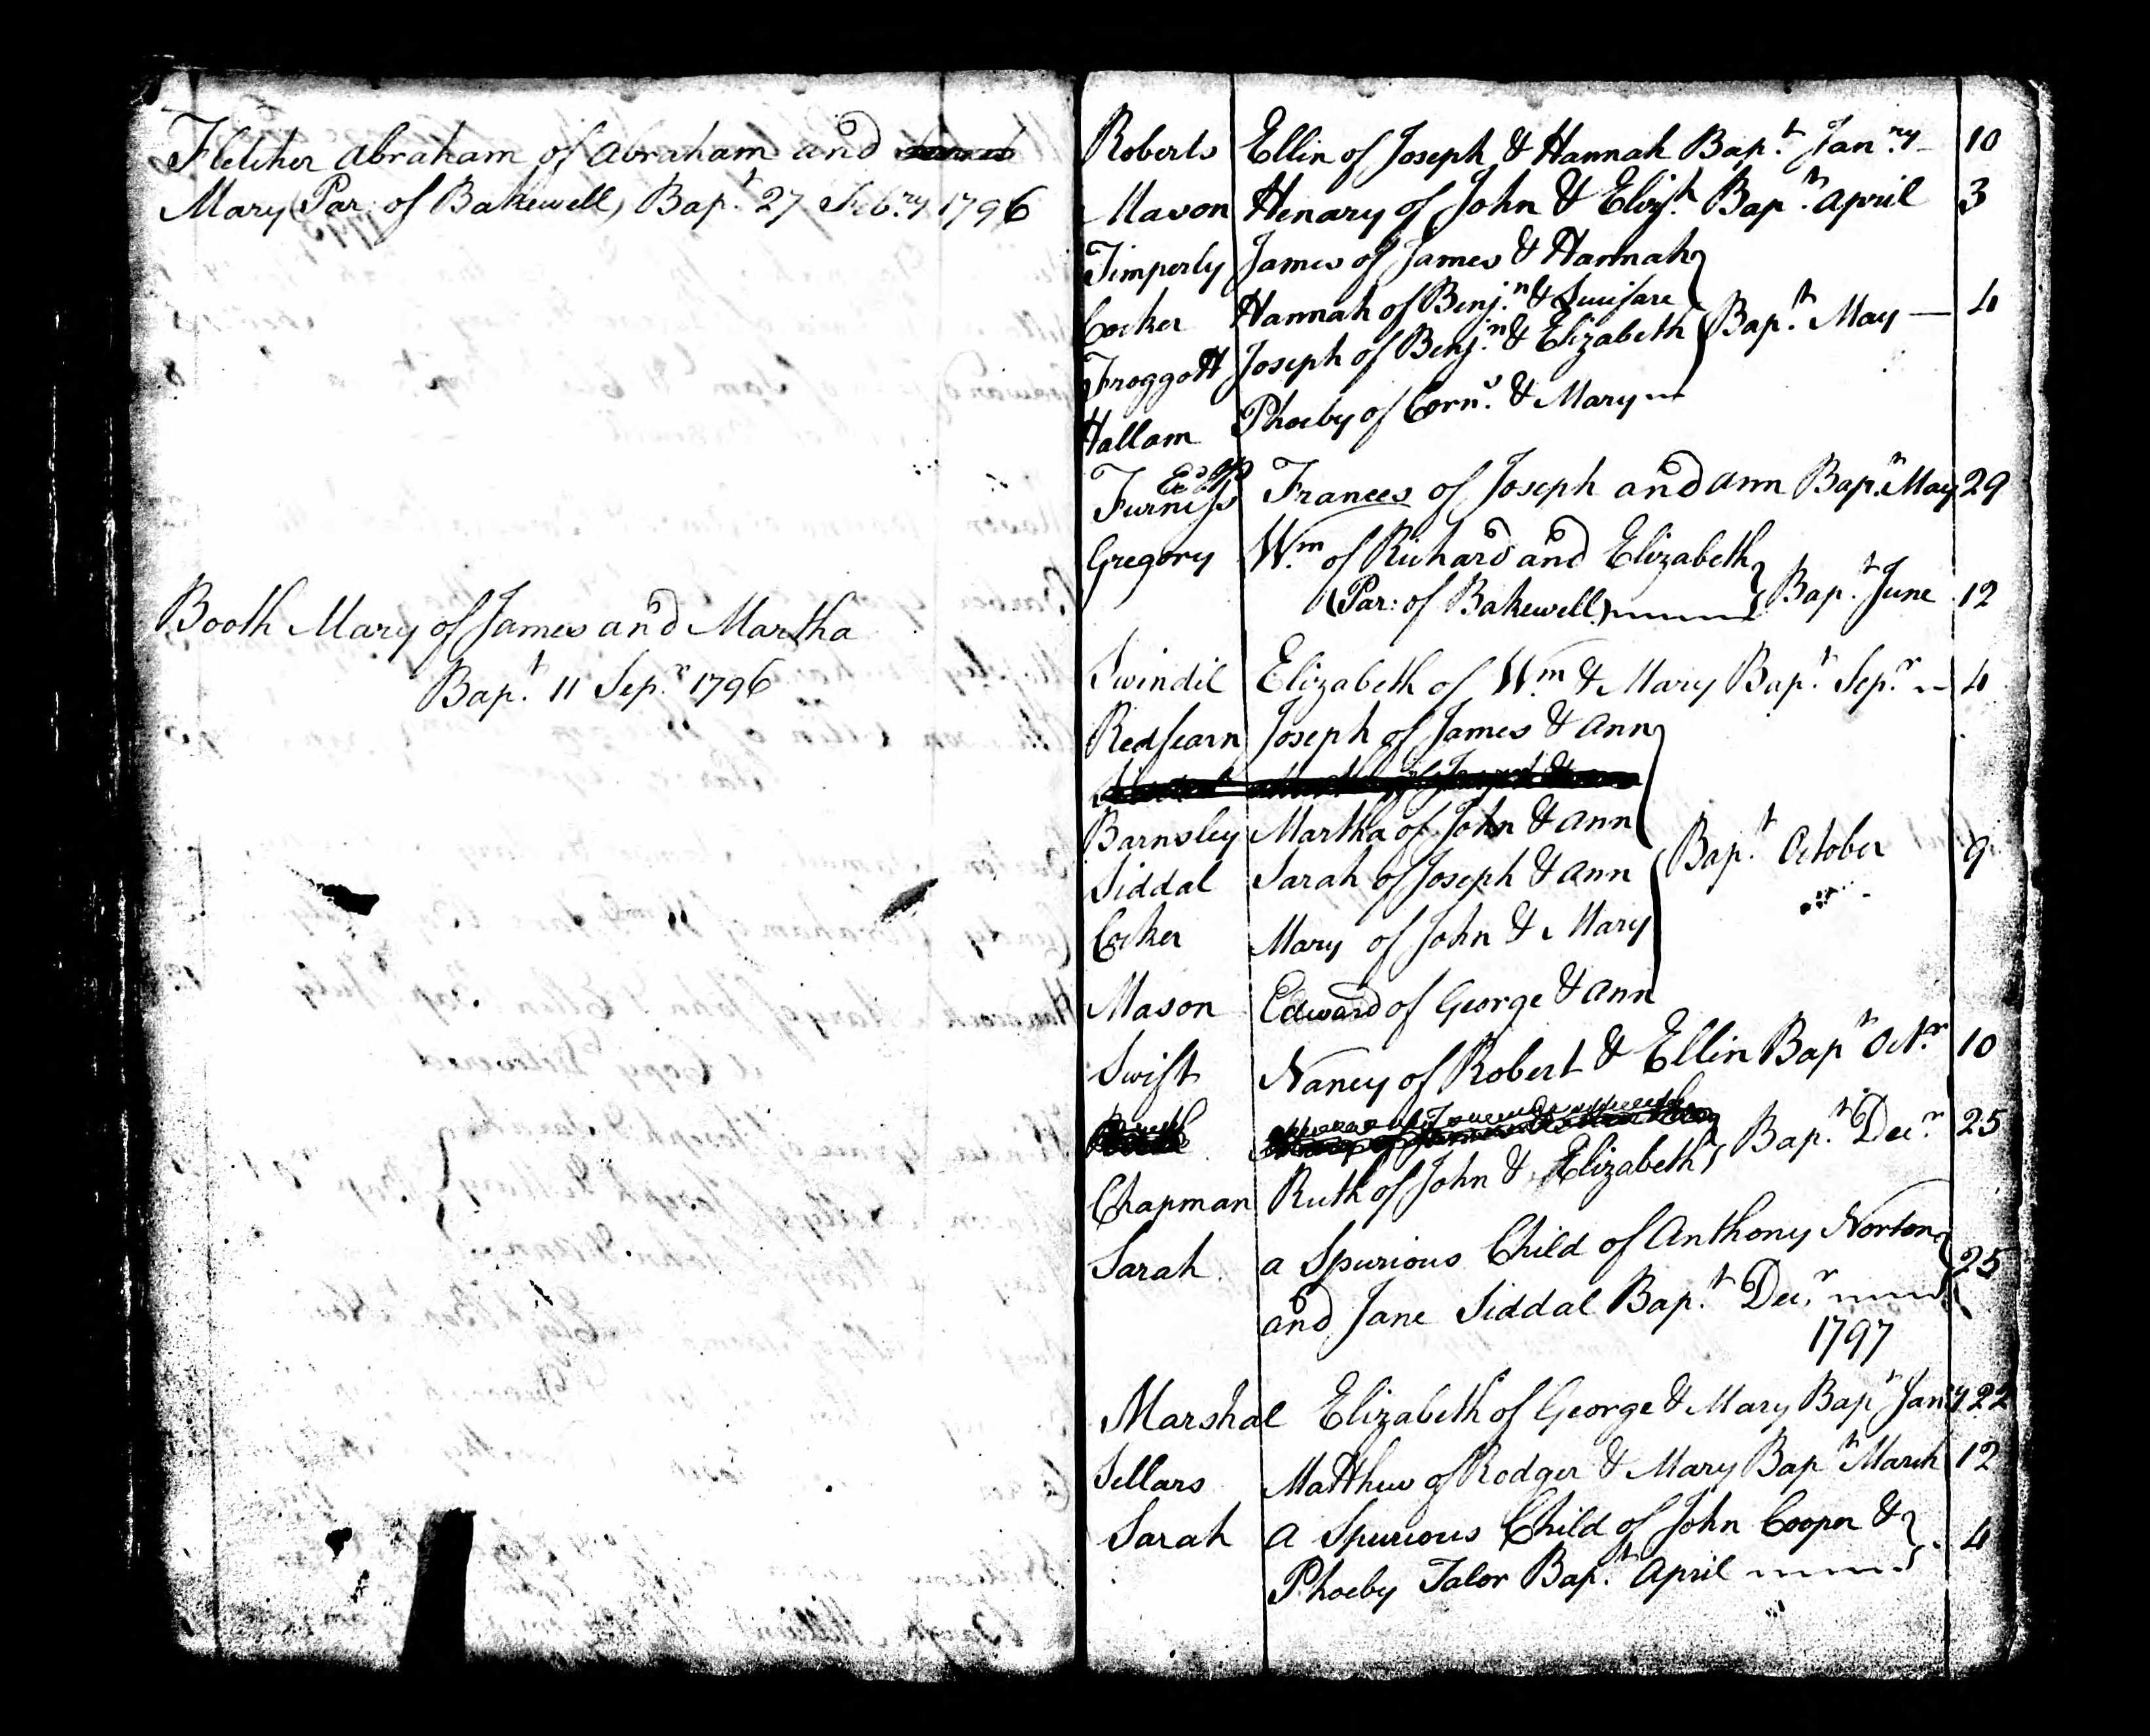 Fletcher Abraham of Abraham and
Mary (Par: of Bakewell) Bapt. 27 Febry 1796
Booth Mary of James and Martha
Bapt. 11 Sepr. 1796
Roberts Ellin of Joseph & Hannah Bapt. Janry 10
Mason Henary of John & Elizth. Bapt. April 3
Timperly James of James & Hannah
Cocker Hannah of Benjn. &
Froggott Joseph of Benjn. & Elizabeth Bapt. May — 4
Hallam Phoeby of Corns. & Mary
Furniss Frances of Joseph and Ann Bapt. May 29
Gregory Wm. of Richard and Elizabeth
(Par: of Bakewell) Bapt. June 12
Swindil Elizabeth of Wm. & Mary Bapt. Sepr. 4
Redfearn Joseph of James & Ann
Barnsley Martha of John & Ann
Siddal Sarah of Joseph & Ann Bapt. October 9
Cocker Mary of John & Mary
Mason Edward of George & Ann
Swift Nancy of Robert & Ellin Bapt Octr. 10
Chapman Ruth of John & Elizabeth Bapt. Decr. 25
Sarah a Spurious Child of Anthony Norton
and Jane Siddal Bapt. Decr. 25
1797
Marshal Elizabeth of George & Mary Bapt Jany 22
Sellars Matthew of Rodger & Mary Bapt March 12
Sarah a Spurious Child of John Cooper &
Phoeby Talor Bapt. April 4